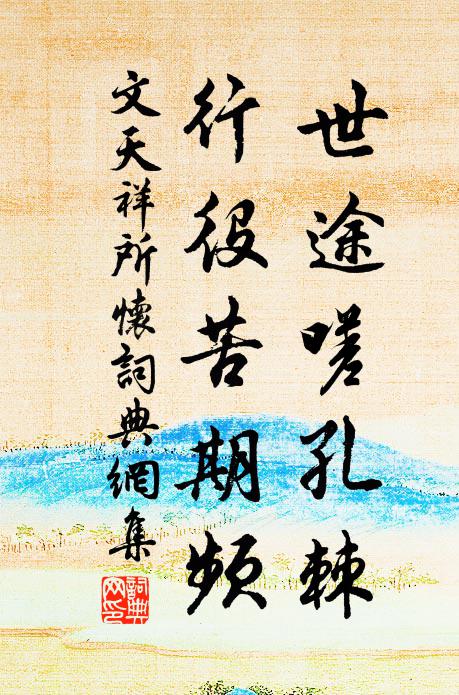 世途嗟孔棘
行役苦期頻
文天祥所懷詞典網集
詞典網印